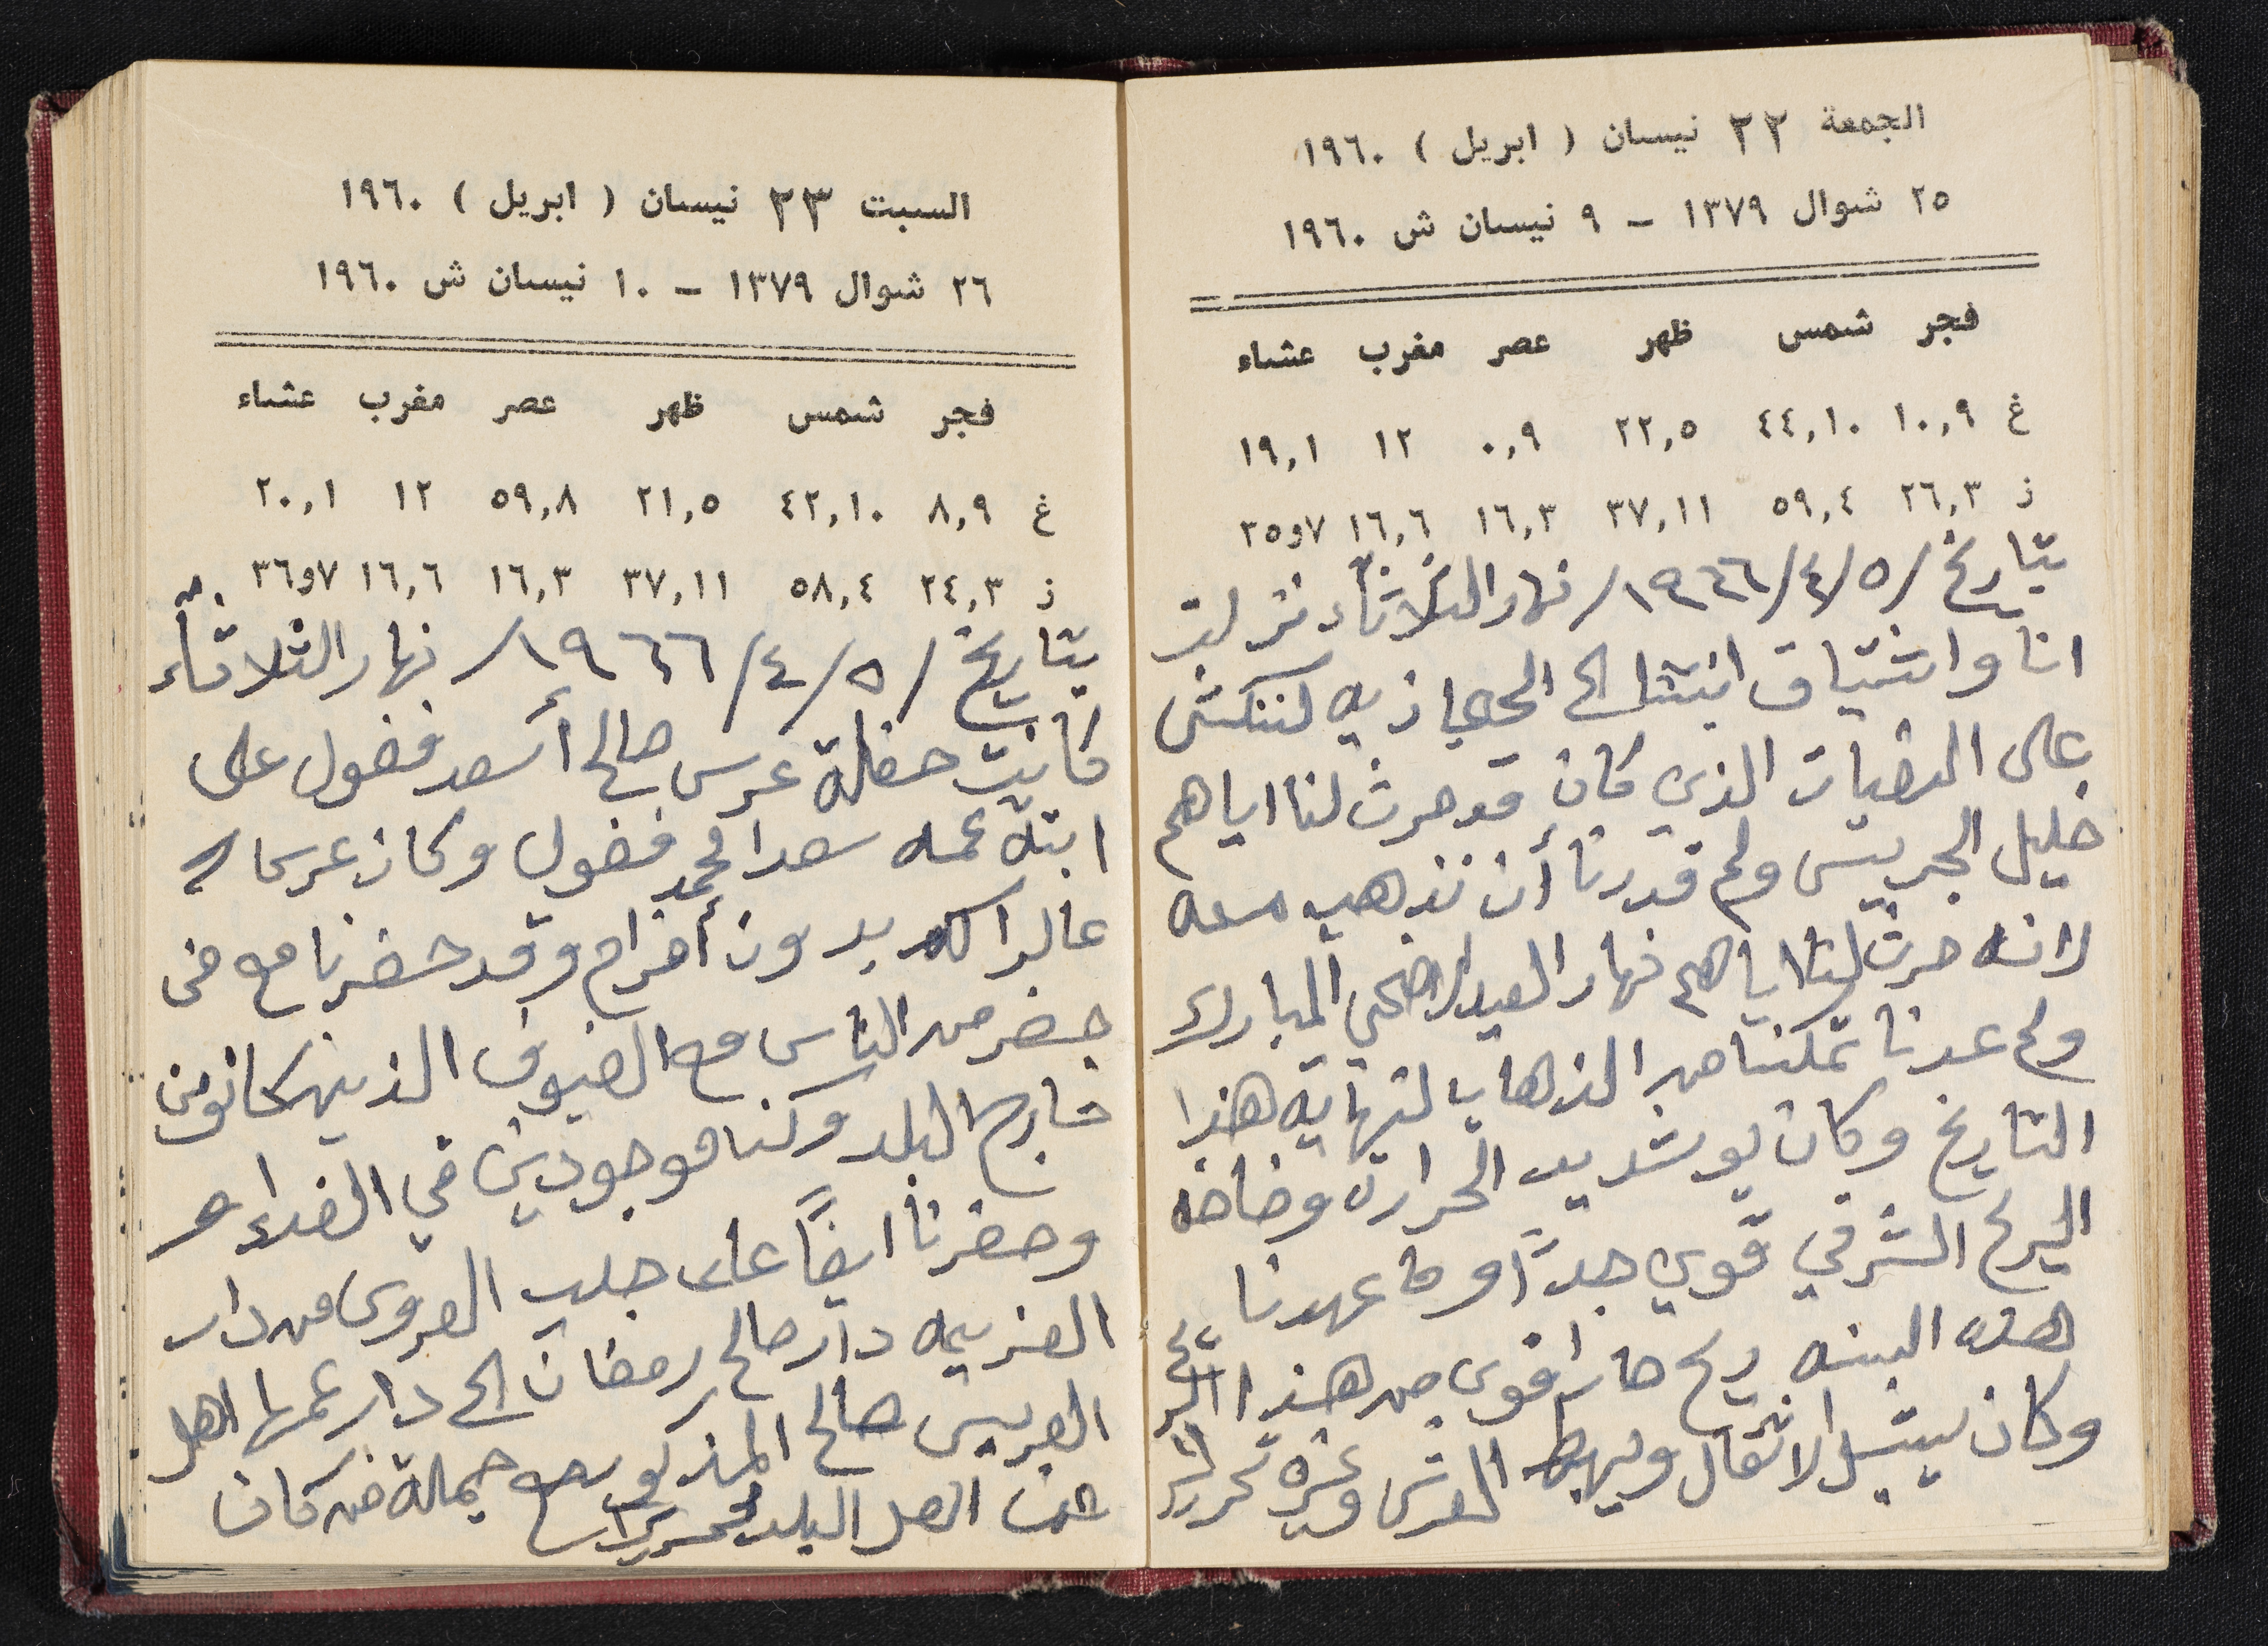 الجمعة ٢٢ نيسان ( ابريل ) ١٩٦٠
٢٥ شوال ١٣٧٩ – ٩ نيسان ش ١٩٦٠
فجر شمس ظهر عصر مغرب عشاء
غ ١٠,٩ ٤٤,١٠ ٢٢,٥ ٠,٩ ١٢ ١٩,١
ز ٢٦,٣ ٥٩,٤ ٣٧,١١ ١٦,٣ ١٦,٦ ٧و٣٥
بتاريخ /٥/٤/١٩٦٦/ نهار الثلاثاء نزلت
انا واشتياق ابنتنا الى الحجازيه لننكش
على النصبات الذي كان قد حرث لنا اياهم
خليل الجربيس ولم قدرنا أن نذهب معه
لانه حرث لنا اياهم نهار العيد الاضحى المبارك
ولم عدنا تمكنا من الذهاب لنهاية هذا
التاريخ وكان يو شديد الحرارة وخاصه
اليرح الشرقي قوي جداً وما عهدنا
هذه السنه ريح حار اقوى من هذا
وكان يشيل الاثقال ويهبط العرش وغيره تحريراً
السبت ٢٣ نيسان ( ابريل ) ١٩٦٠
٢٦ شوال ١٣٧٩ – ١٠ نيسان ش ١٩٦٠
فجر شمس ظهر عصر مغرب عشاء
غ ٨,٩ ٤٢,١٠ ٢١,٥ ٥٩,٨ ١٢ ٢٠,١
ز ٢٤,٣ ٥٨,٤ ٣٧,١١ ١٦,٣ ١٦,٦ ٧و٣٦
بتاريخ /٥/٤/١٩٦٦/ نهار الثلاثاء
كانت حفلة عرس صالح أسعد فضول على
ابنة عمه سعدا محمد فضول وكان عرسا
بدون أفرام وقد حضرنا مع من
حضر من الناس مع الضيوف الذين كانو من
خارج البلد وكنا موجودين في الغداء
وحضرنا ايضاً على جلب العروس من دار
الغريبه دار صالح رمضان الى دار عمها اهل
العريس صالح المذكور مع جملة من كان
من اهل البلد تحريراً